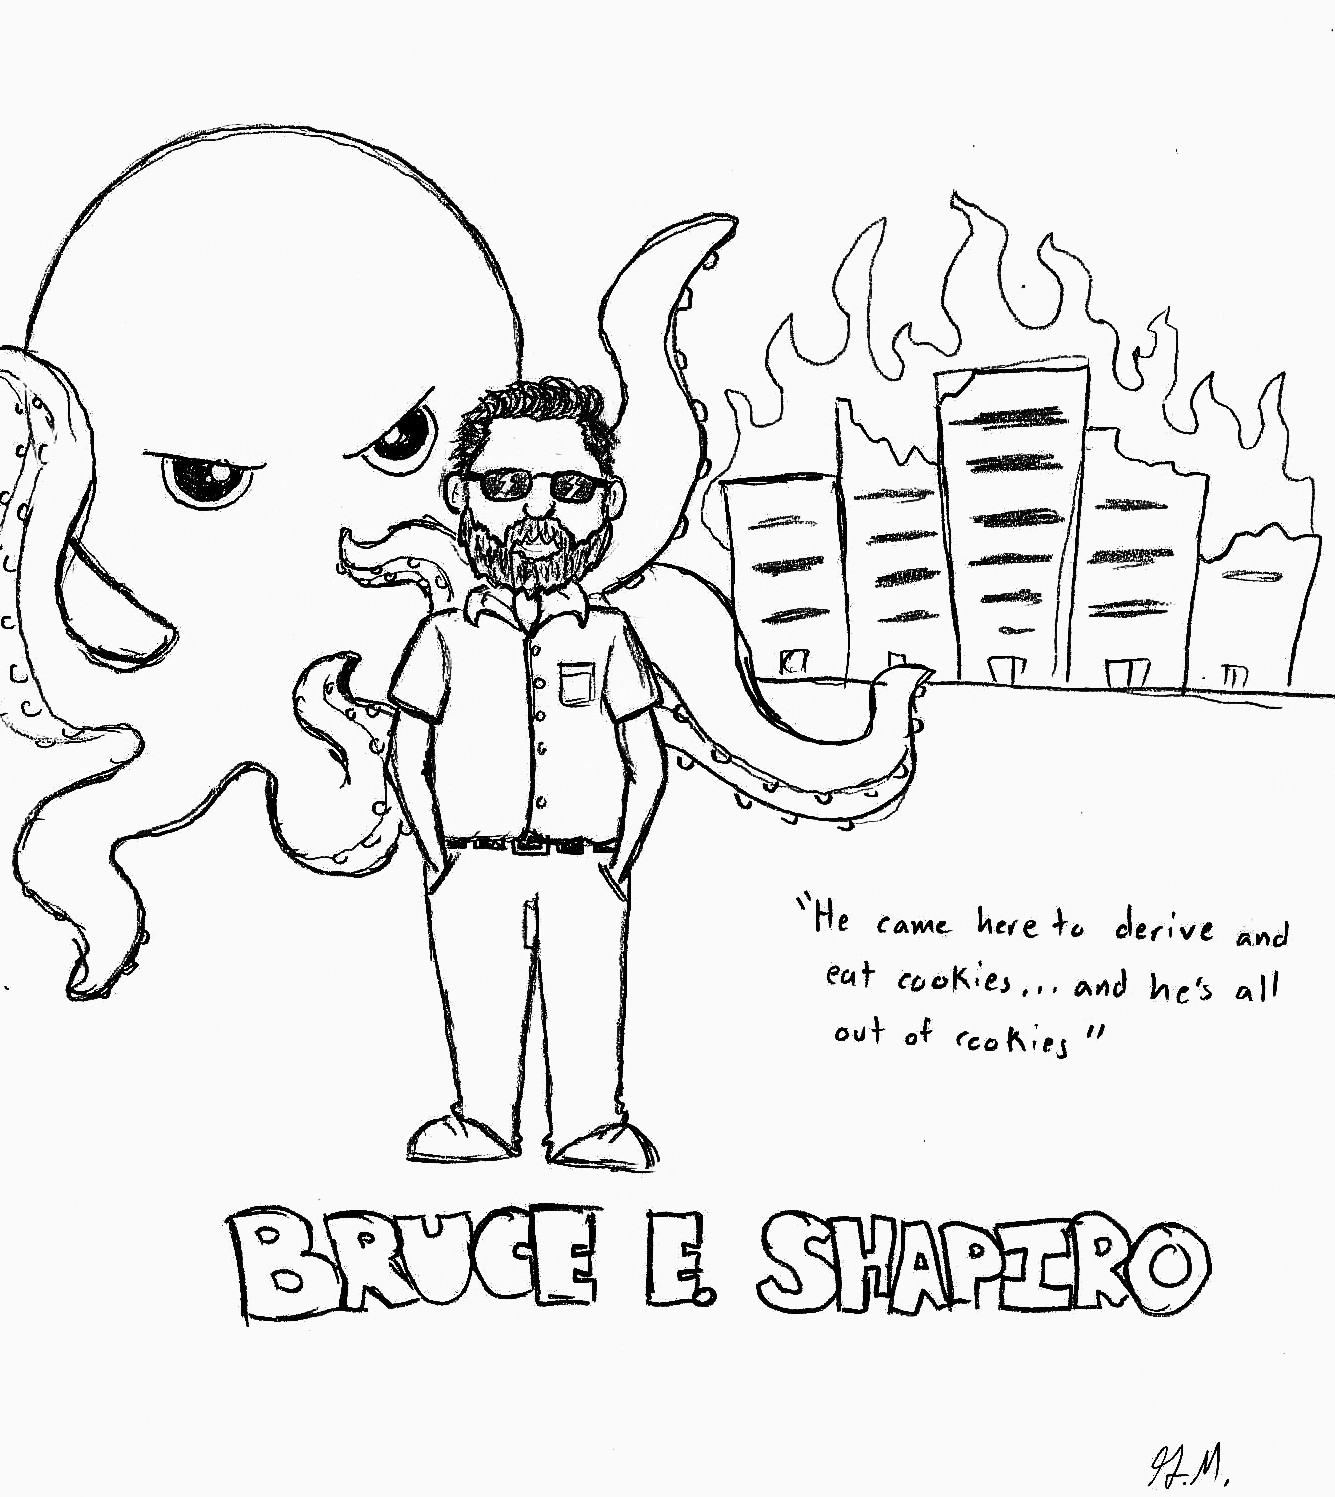 "He came here to derive and
eat cookies... and he's all
out of cookies"
BRUCE E. SHAPIRO